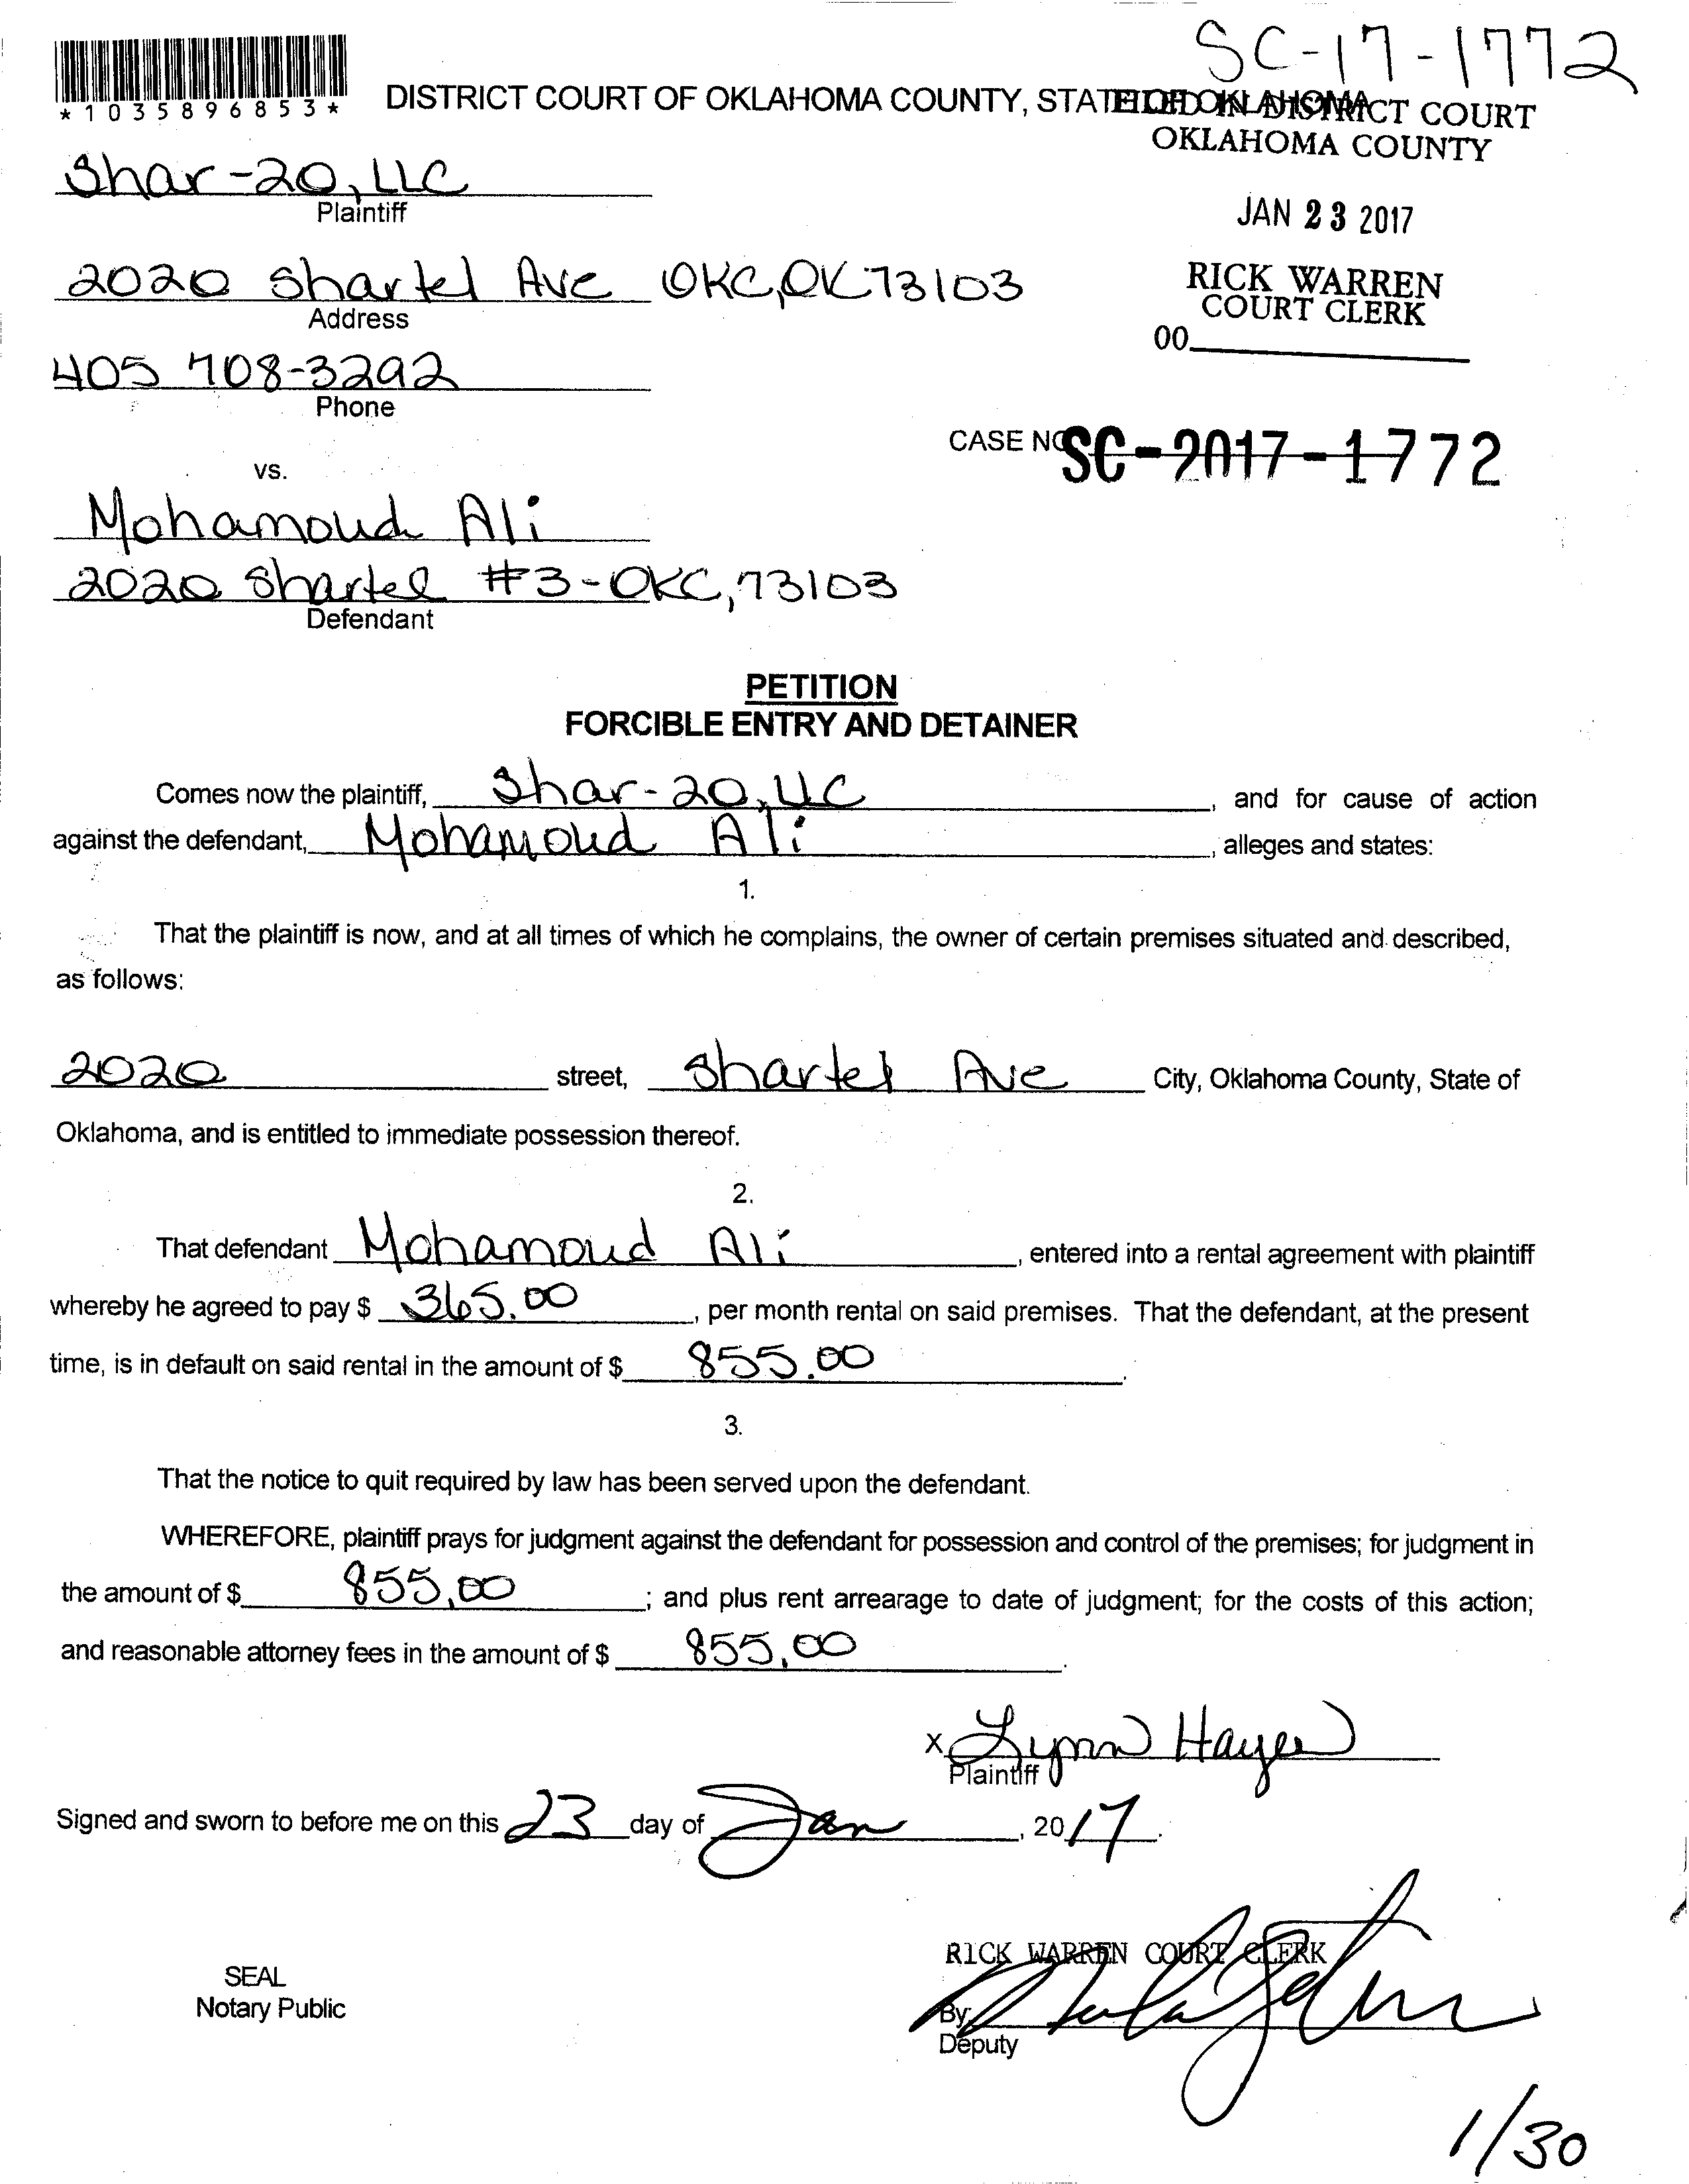 SC-17-1772
*1035896853*
DISTRICT COURT OF OKLAHOMA COUNTY, STATE OF OKLAHOMA
FILED IN DISTRICT COURT
OKLAHOMA COUNTY
Shar-20, LLC
Plaintiff
JAN 23 2017
2020 Shartel Ave OKC, OK 73103
Address
RICK WARREN
COURT CLERK
00
405 708-3292
Phone
CASE NO SC-2017-1772
vs.
Mohamoud Ali
2020 Shartel #3-OKC, 73103
Defendant
PETITION
FORCIBLE ENTRY AND DETAINER
Comes now the plaintiff, Shar-20, LLC, and for cause of action
against the defendant, Mohamoud Ali, alleges and states:
1.
That the plaintiff is now, and at all times of which he complains, the owner of certain premises situated and described,
as follows:
2020 street, Shartel Ave City, Oklahoma County, State of
Oklahoma, and is entitled to immediate possession thereof.
2.
That defendant Mohamoud Ali, entered into a rental agreement with plaintiff
whereby he agreed to pay $ 365.00, per month rental on said premises. That the defendant, at the present
time, is in default on said rental in the amount of $ 855.00.
3.
That the notice to quit required by law has been served upon the defendant.
WHEREFORE, plaintiff prays for judgment against the defendant for possession and control of the premises; for judgment in
the amount of $ 855.00; and plus rent arrearage to date of judgment; for the costs of this action;
and reasonable attorney fees in the amount of $ 855.00.
X Lynn Hayes
Plaintiff
Signed and sworn to before me on this 23 day of Jan, 2017.
RICK WARREN COURT CLERK
SEAL
Notary Public
By:
Deputy
1/30